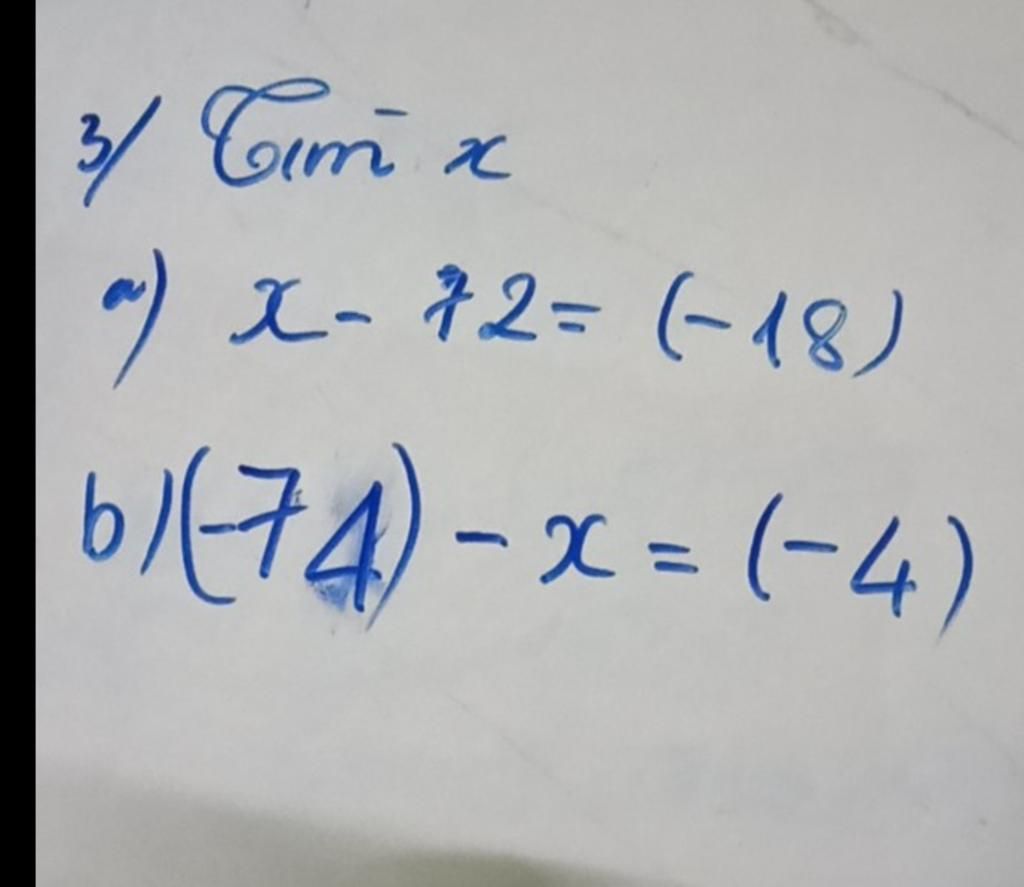 3/ Tìm x
a) x - 72 = (-18)
b) (-74) - x = (-4)